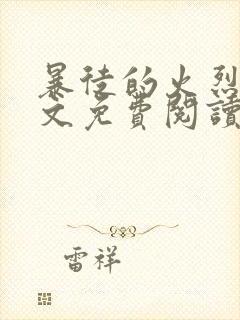 暴徒的火烈
文免費閱讀
雷祥